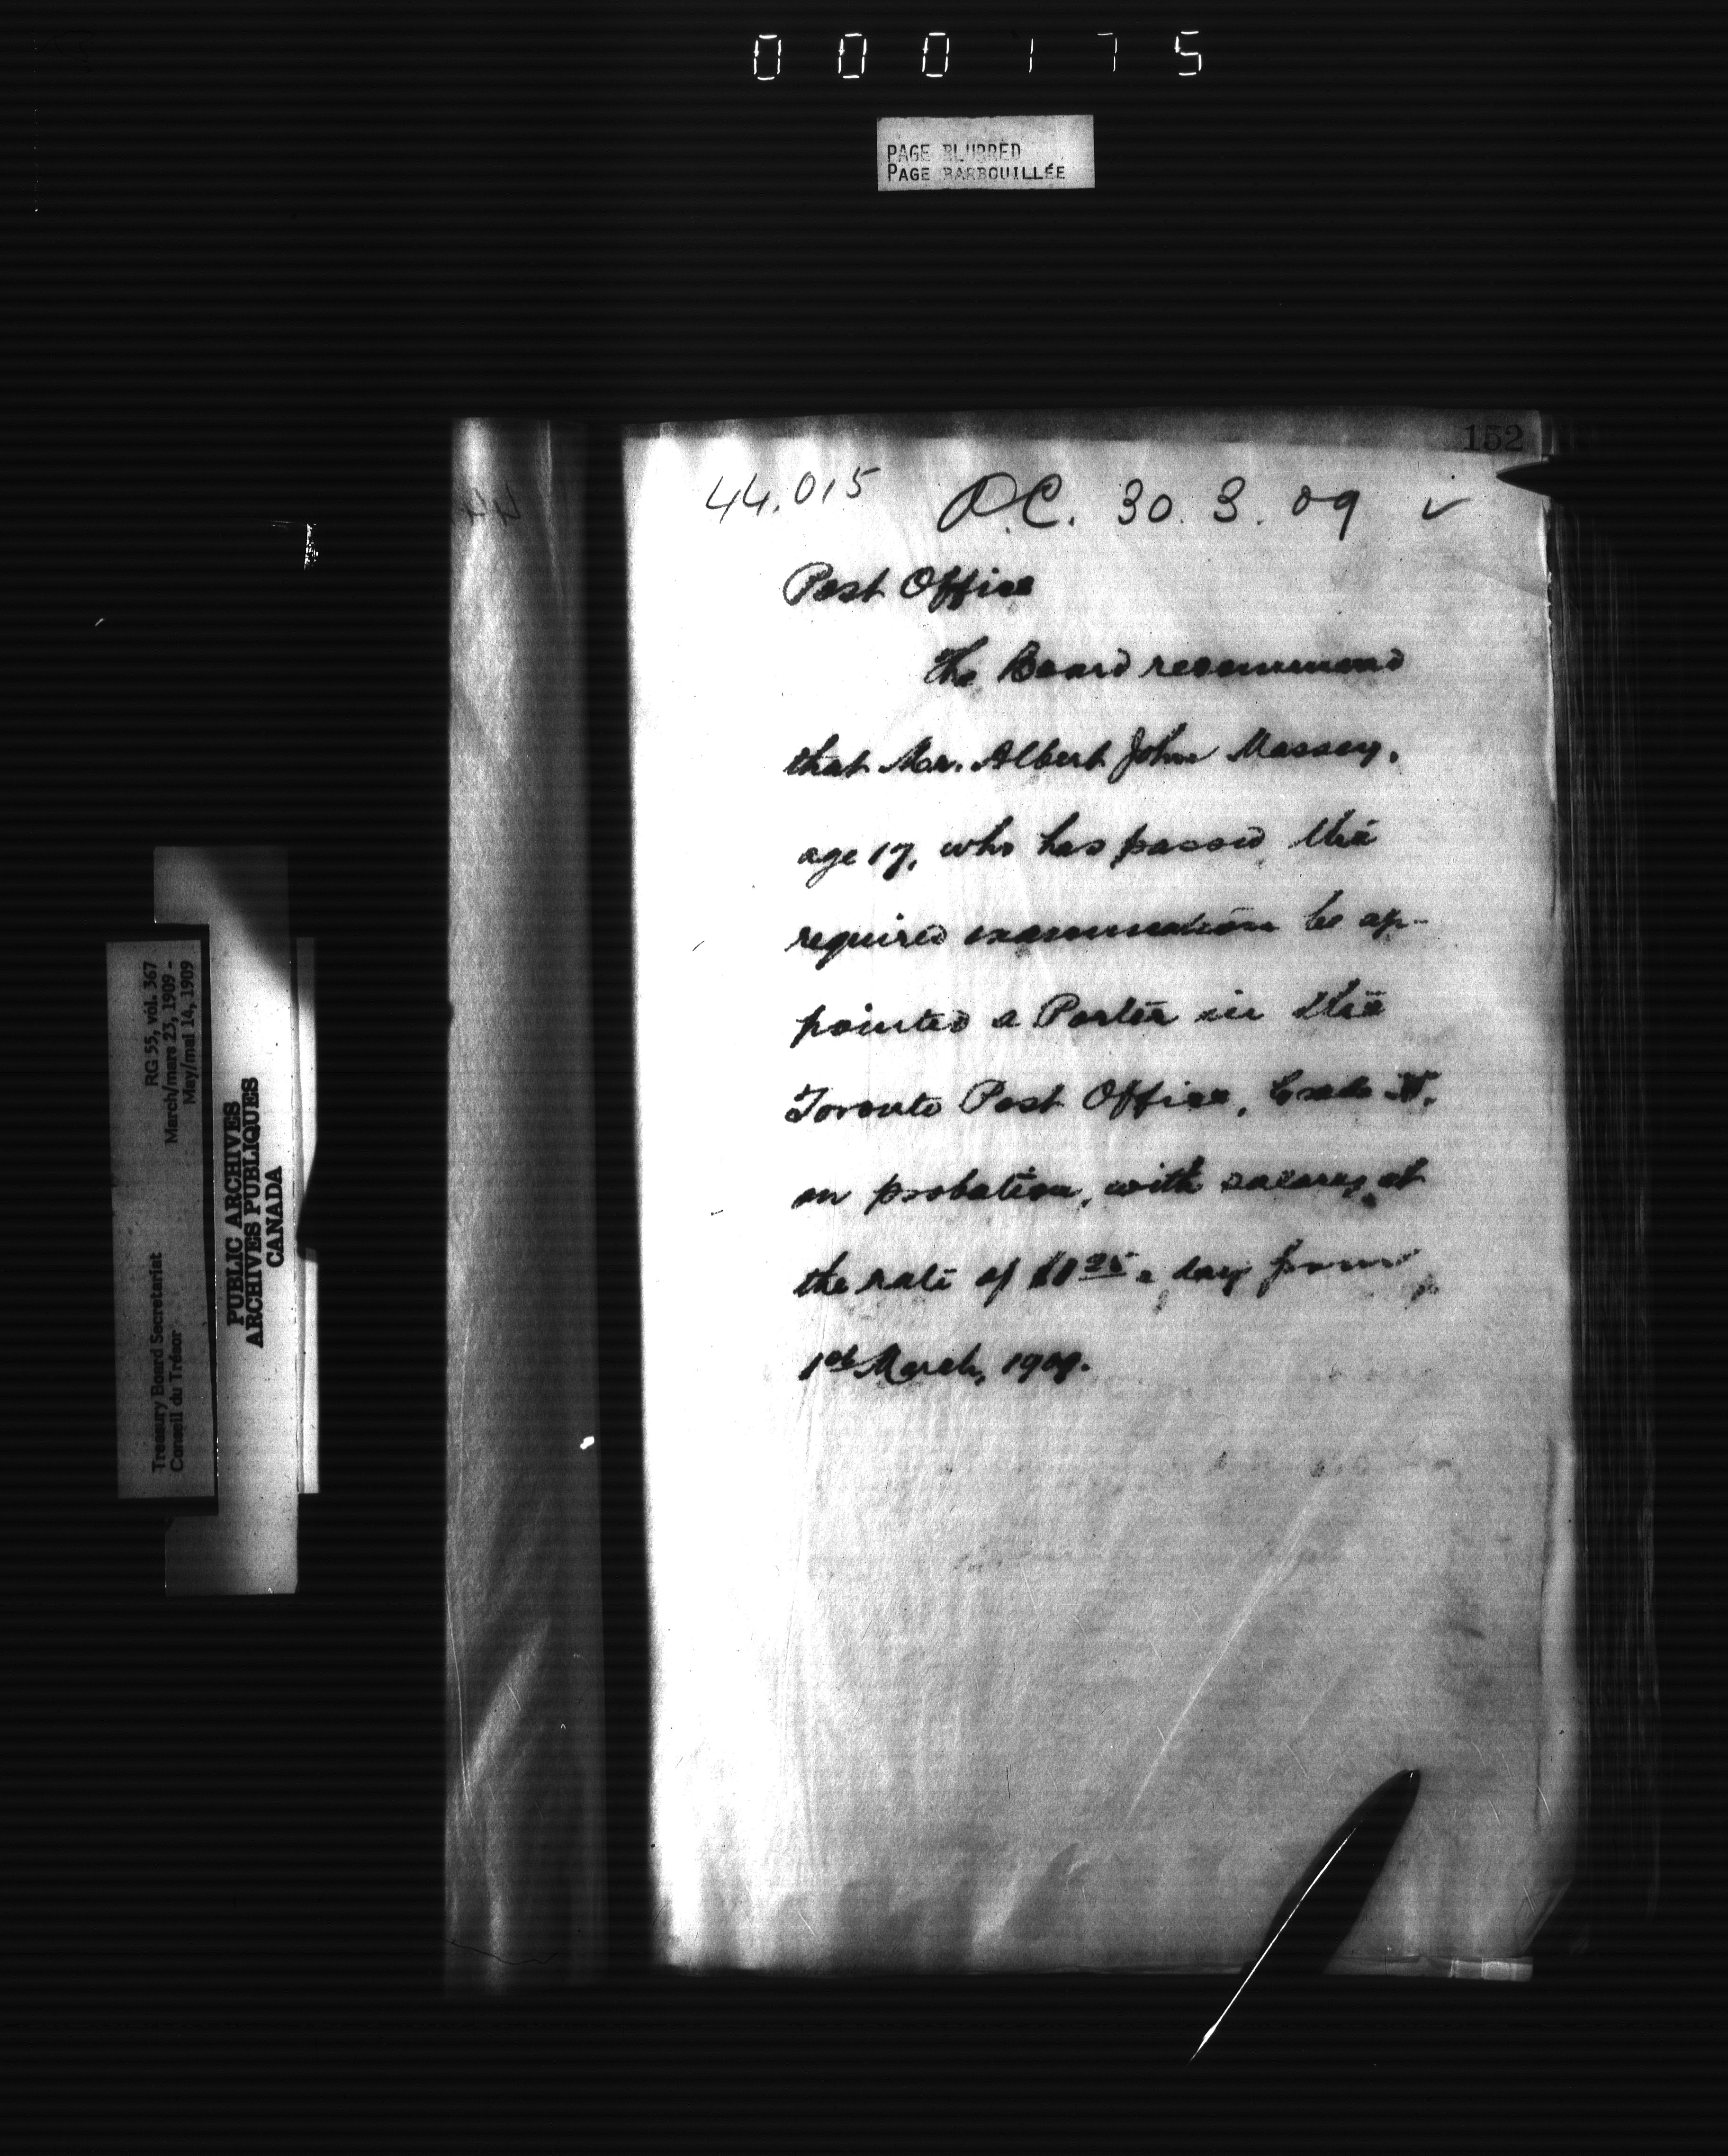 000175
PAGE BLURRED
PAGE BARBOUILLÉE
152
44.015 O.C. 30.3.09 ✓
Post Office
The Board recommend
that Mr. Albert John Massey,
age 17, who has passed the
required examination be ap-
pointed a Porter in the
Toronto Post Office, Grade
on probation, with salary at
the rate of $1 25 a day from
1st March, 1909.
RG 55, vol. 367
March/mars 23, 1909 -
May/mai 14, 1909
Treasury Board Secretariat
Conseil du Trésor
PUBLIC ARCHIVES
ARCHIVES PUBLIQUES
CANADA